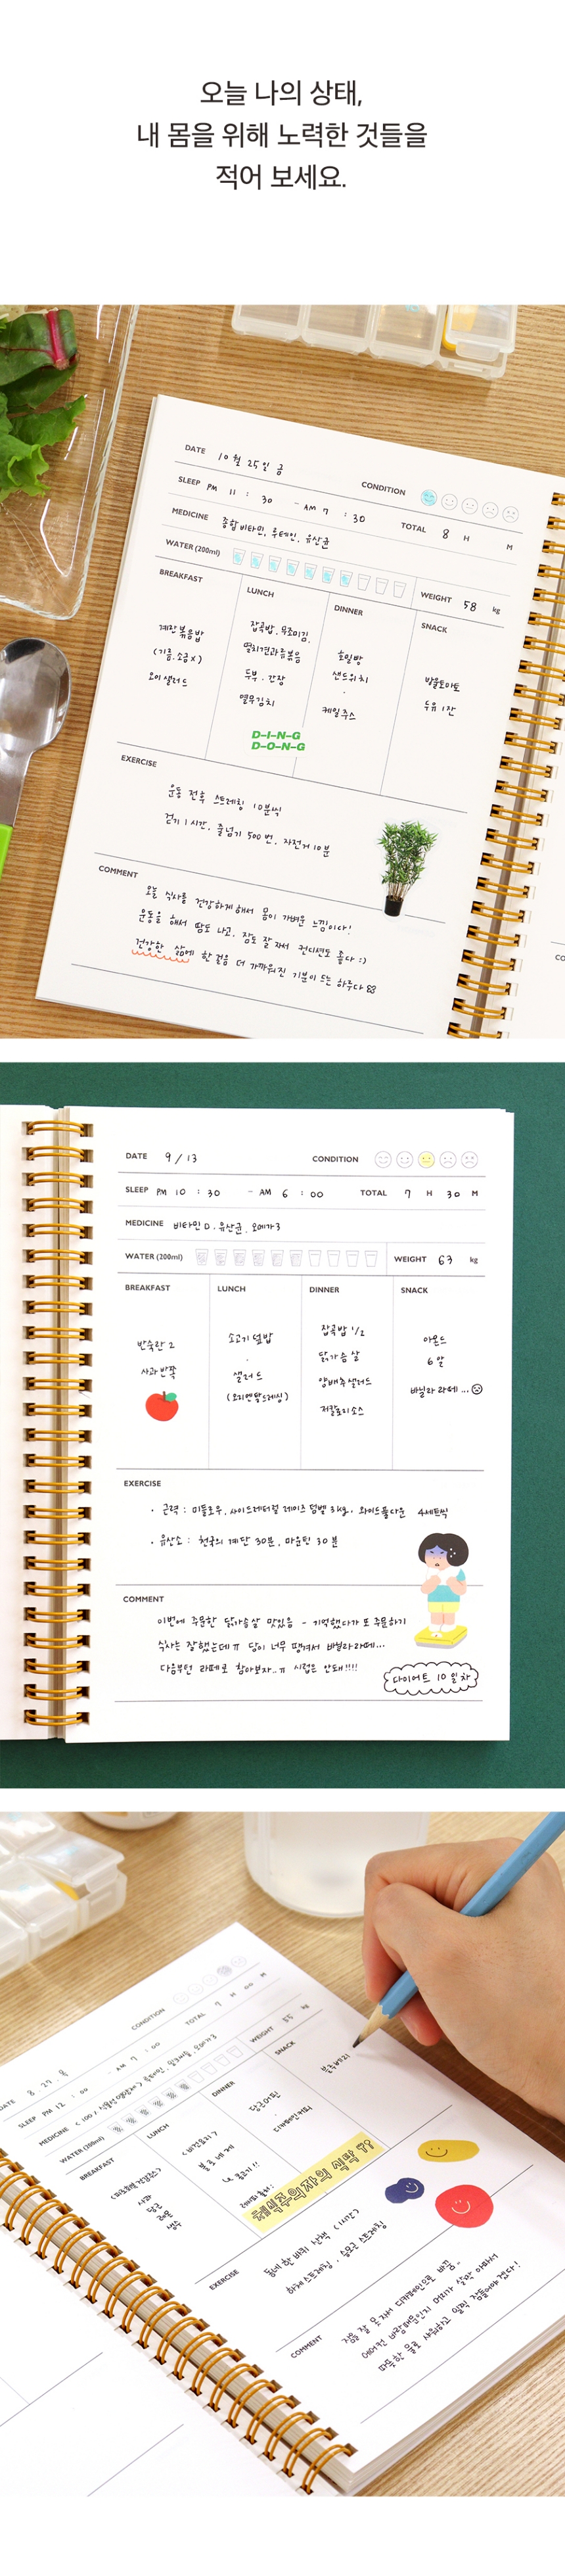 오늘 나의 상태,
내 몸을 위해 노력한 것들을
적어 보세요.
DATE 10월 25일 금
CONDITION
SLEEP PM 11 : 30 - AM 7 : 30 TOTAL 8 H M
MEDICINE 종합비타민, 루테인, 유산균
WATER (200ml) WEIGHT 58 kg
BREAKFAST
계란볶음밥
(기름, 소금 X)
오이샐러드
LUNCH
잡곡밥, 묵조미김,
멸치견과류볶음
두부 . 간장
열무김치
DINNER
호밀빵
샌드위치
케일주스
SNACK
방울토마토
두유 1잔
D-I-N-G
D-O-N-G
EXERCISE
운동 전후 스트레칭 10분씩
걷기 1시간, 줄넘기 500번, 자전거 10분
COMMENT
오늘 식사를 건강하게 해서 몸이 가벼운 느낌이다!
운동을 해서 땀도 나고, 잠도 잘 자서 컨디션도 좋다 :)
건강한 삶에 한 걸음 더 가까워진 기분이 드는 하루다
CO
DATE 9 / 13 CONDITION
SLEEP PM 10 : 30 - AM 6 : 00 TOTAL 7 H 30 M
MEDICINE 비타민 D, 유산균, 오메가3
WATER (200ml) WEIGHT 63 kg
BREAKFAST
반숙란 2
사과 반쪽
LUNCH
소고기 덮밥
샐러드
(오리엔탈드레싱)
DINNER
잡곡밥 1/2
닭가슴살
양배추샐러드
저칼로리소스
SNACK
아몬드
6알
바닐라 라떼 ...
EXERCISE
· 근력 : 미들로우, 사이드레터럴 레이즈 덤벨 3kg, 와이드풀다운 4세트씩
· 유산소 : 천국의 계단 30분, 마운틴 30분
COMMENT
이번에 주문한 닭가슴살 맛있음 - 기억했다가 또 주문하기
식사는 잘했는데ㅠ 당이 너무 땡겨서 바닐라라떼...
다음부턴 라떼로 참아보자..ㅠ 시럽은 안돼!!!!
다이어트 10일차
DATE 8. 27. 월
CONDITION
SLEEP PM 12 : 00 - AM 7 : 00 TOTAL 7 H 00 M
MEDICINE
WATER (200ml) WEIGHT 55 kg
BREAKFAST
사과
당근
레몬
LUNCH
<비건요리>
DINNER
당근머핀
디카페인커피
SNACK
블루베리
채식주의자의 식탁
EXERCISE
동네 한 바퀴 산책 (1시간)
하체스트레칭, 승모근 스트레칭
COMMENT
잠을 잘 못 자서 디카페인으로 바꿈~
에어컨 바람때문인지 머리가 살짝 아파서
따뜻한 물로 샤워하고 일찍 잠들어야겠다!